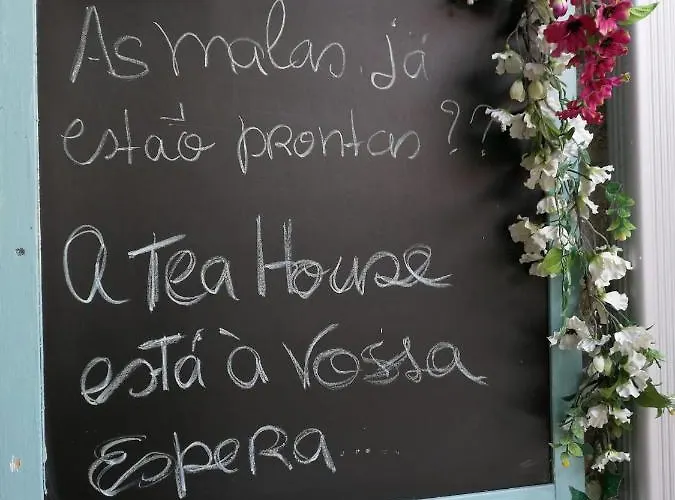 As malas já
estão prontas ??
A Tea House
está à Vossa
Espera.....